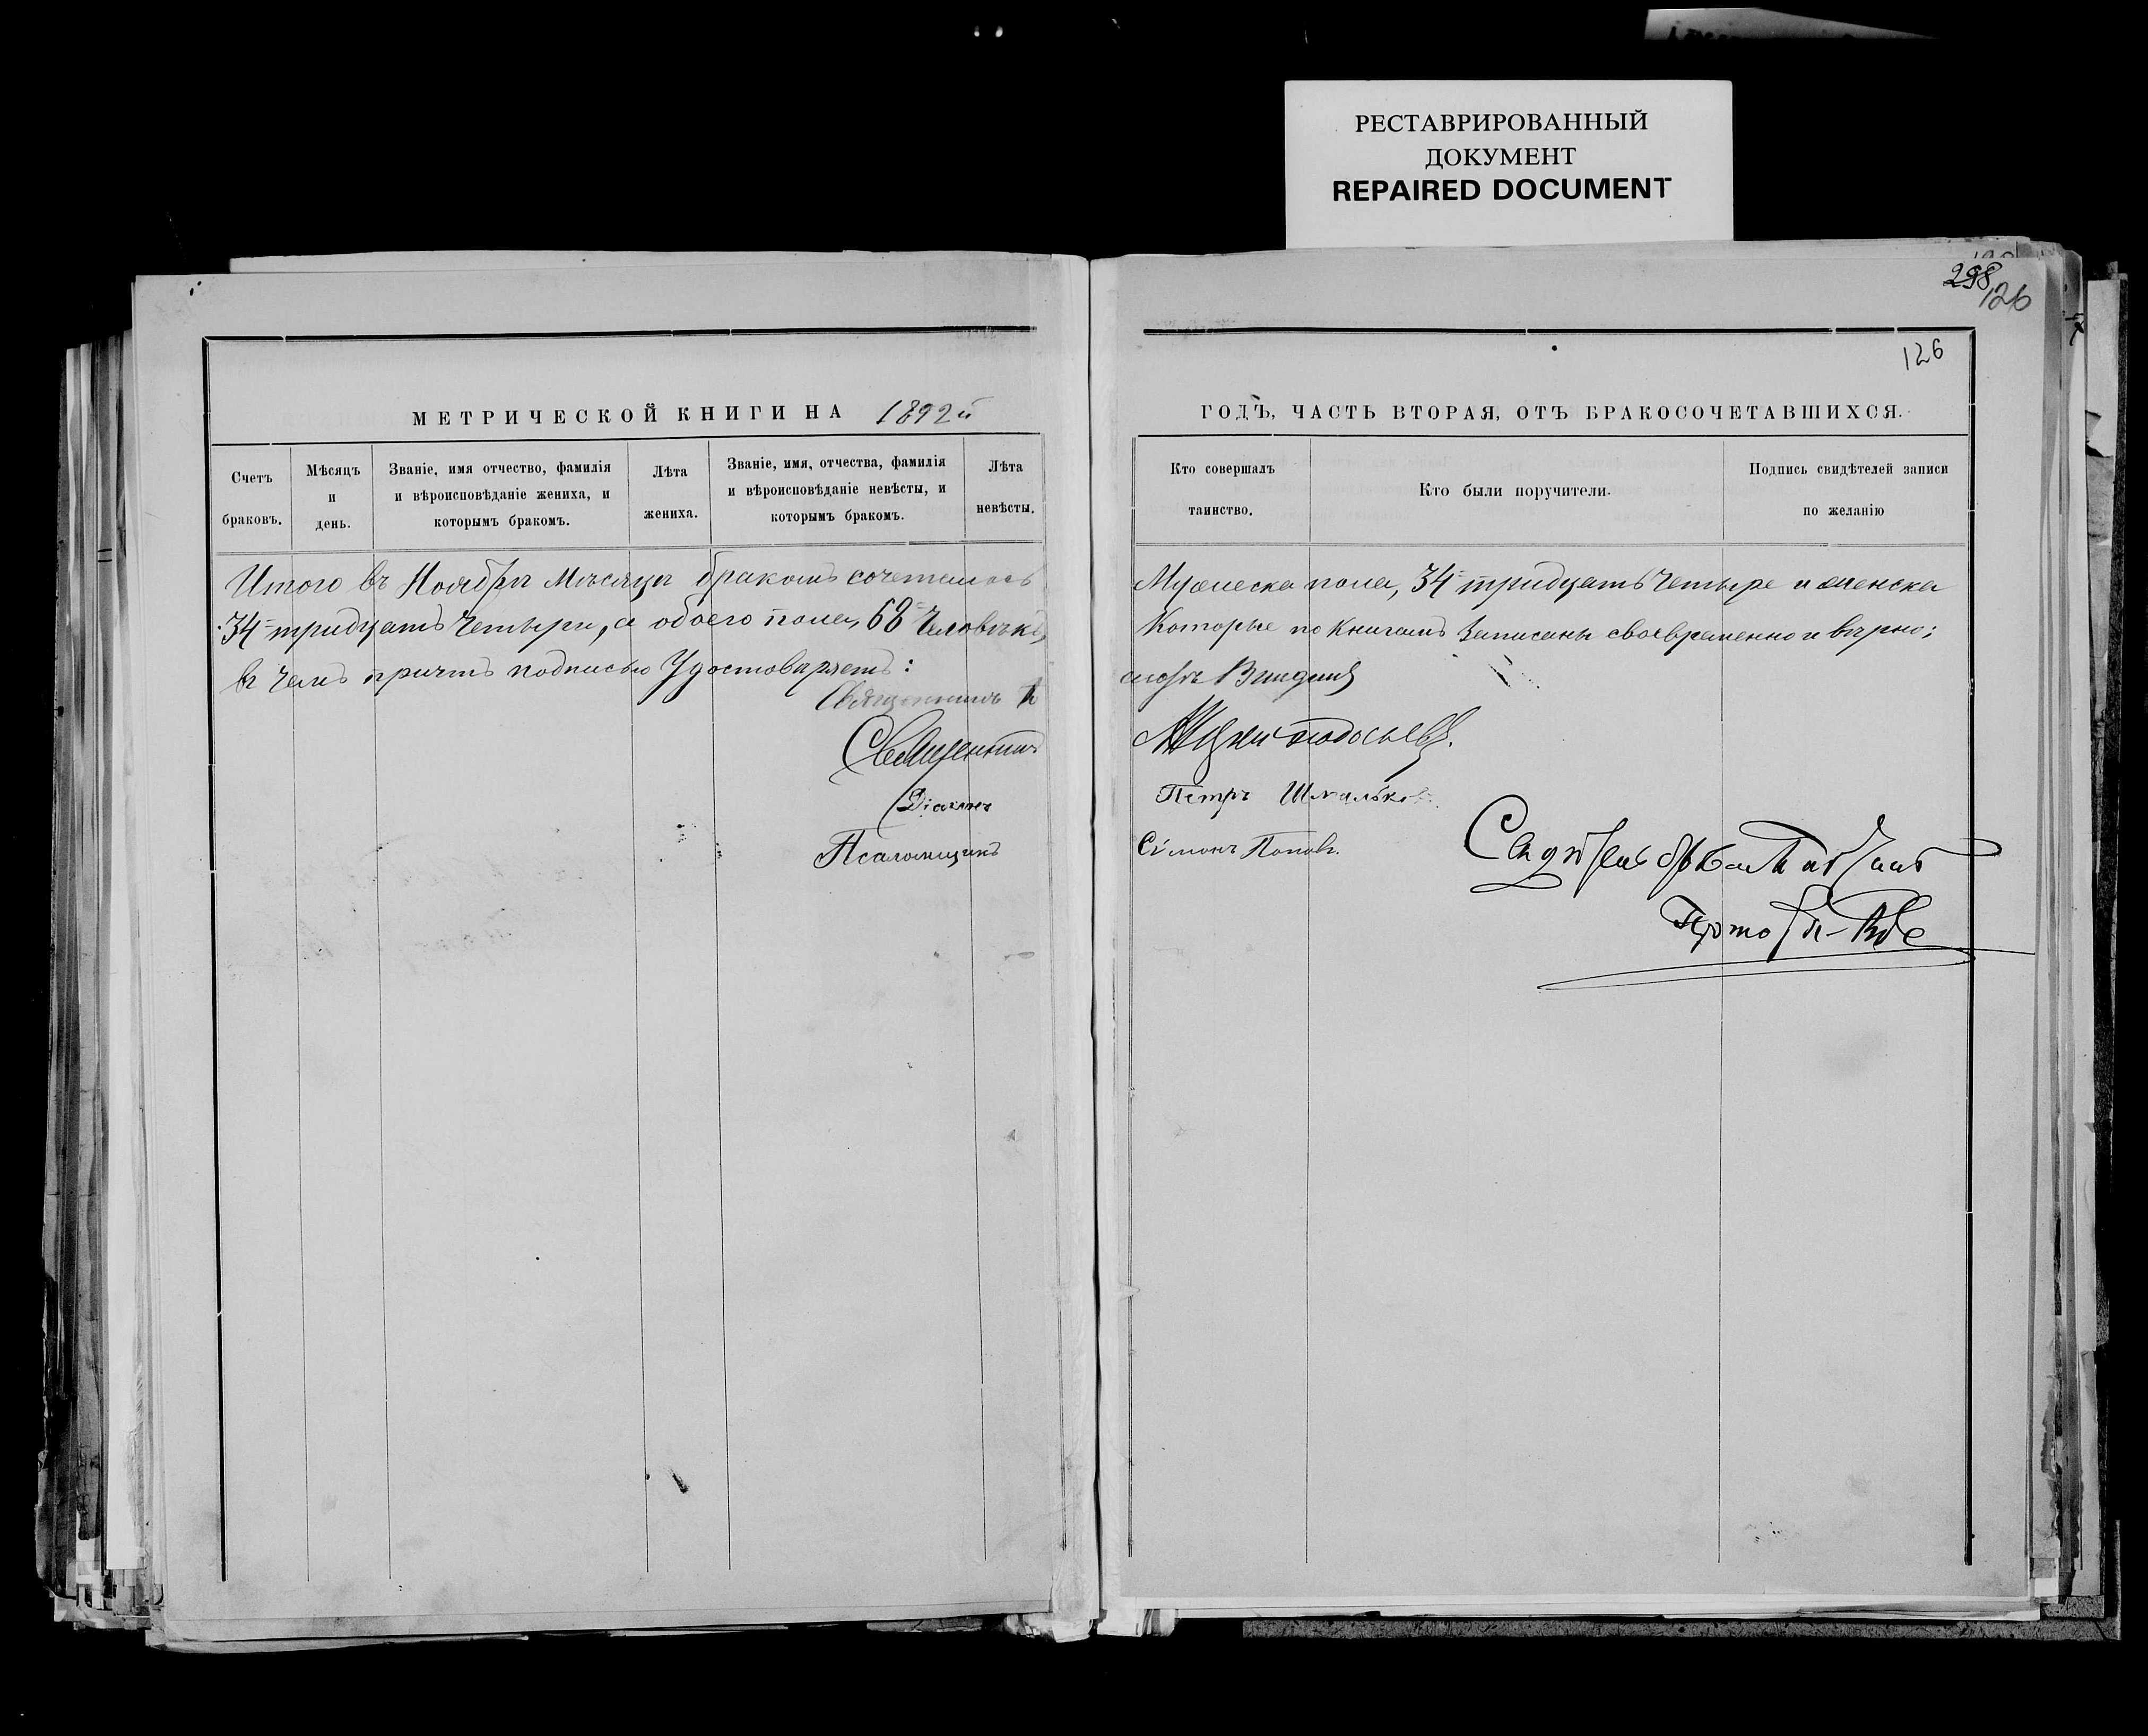 РЕСТАВРИРОВАННЫЙ
ДОКУМЕНТ
REPAIRED DOCUMENT
298
126
126
МЕТРИЧЕСКОЙ КНИГИ НА 1892й
Счетъ браковъ.
Мѣсяцъ и день.
Званіе, имя отчество, фамилія и вѣроисповѣданіе жениха, и которымъ бракомъ.
Лѣта жениха.
Званіе, имя, отчества, фамилія и вѣроисповѣданіе невѣсты, и которымъ бракомъ.
Лѣта невѣсты.
Итого въ Ноябрѣ Мѣсяцѣ бракомъ сочеталось
34 тридцать четыре, а обоего пола, 68 человѣкъ,
въ чемъ причтъ подписью Удостовѣряетъ:
Священникъ
Священникъ
Діаконъ
Псаломщикъ
ГОДЪ, ЧАСТЬ ВТОРАЯ, ОТЪ БРАКОСОЧЕТАВШИХСЯ.
Кто совершалъ таинство.
Кто были поручители.
Подпись свидѣтелей записи по желанію
Мужеска пола, 34 тридцать четыре и женска
Которые по книгамъ записаны своевременно и вѣрно;
Петръ
Симонъ Поповъ.